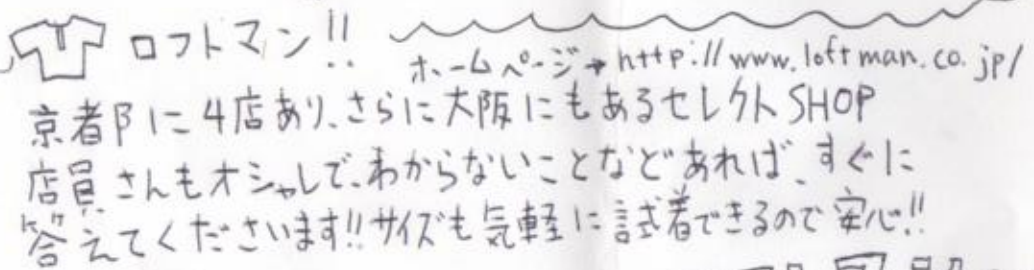 ロフトマン!!
ホームページ→http://www.loftman.co.jp/
京都に4店あり、さらに大阪にもあるセレクトSHOP
店員さんもオシャレで、わからないことなどあれば、すぐに
答えてくださいます!!サイズも気軽に試着できるので安心!!